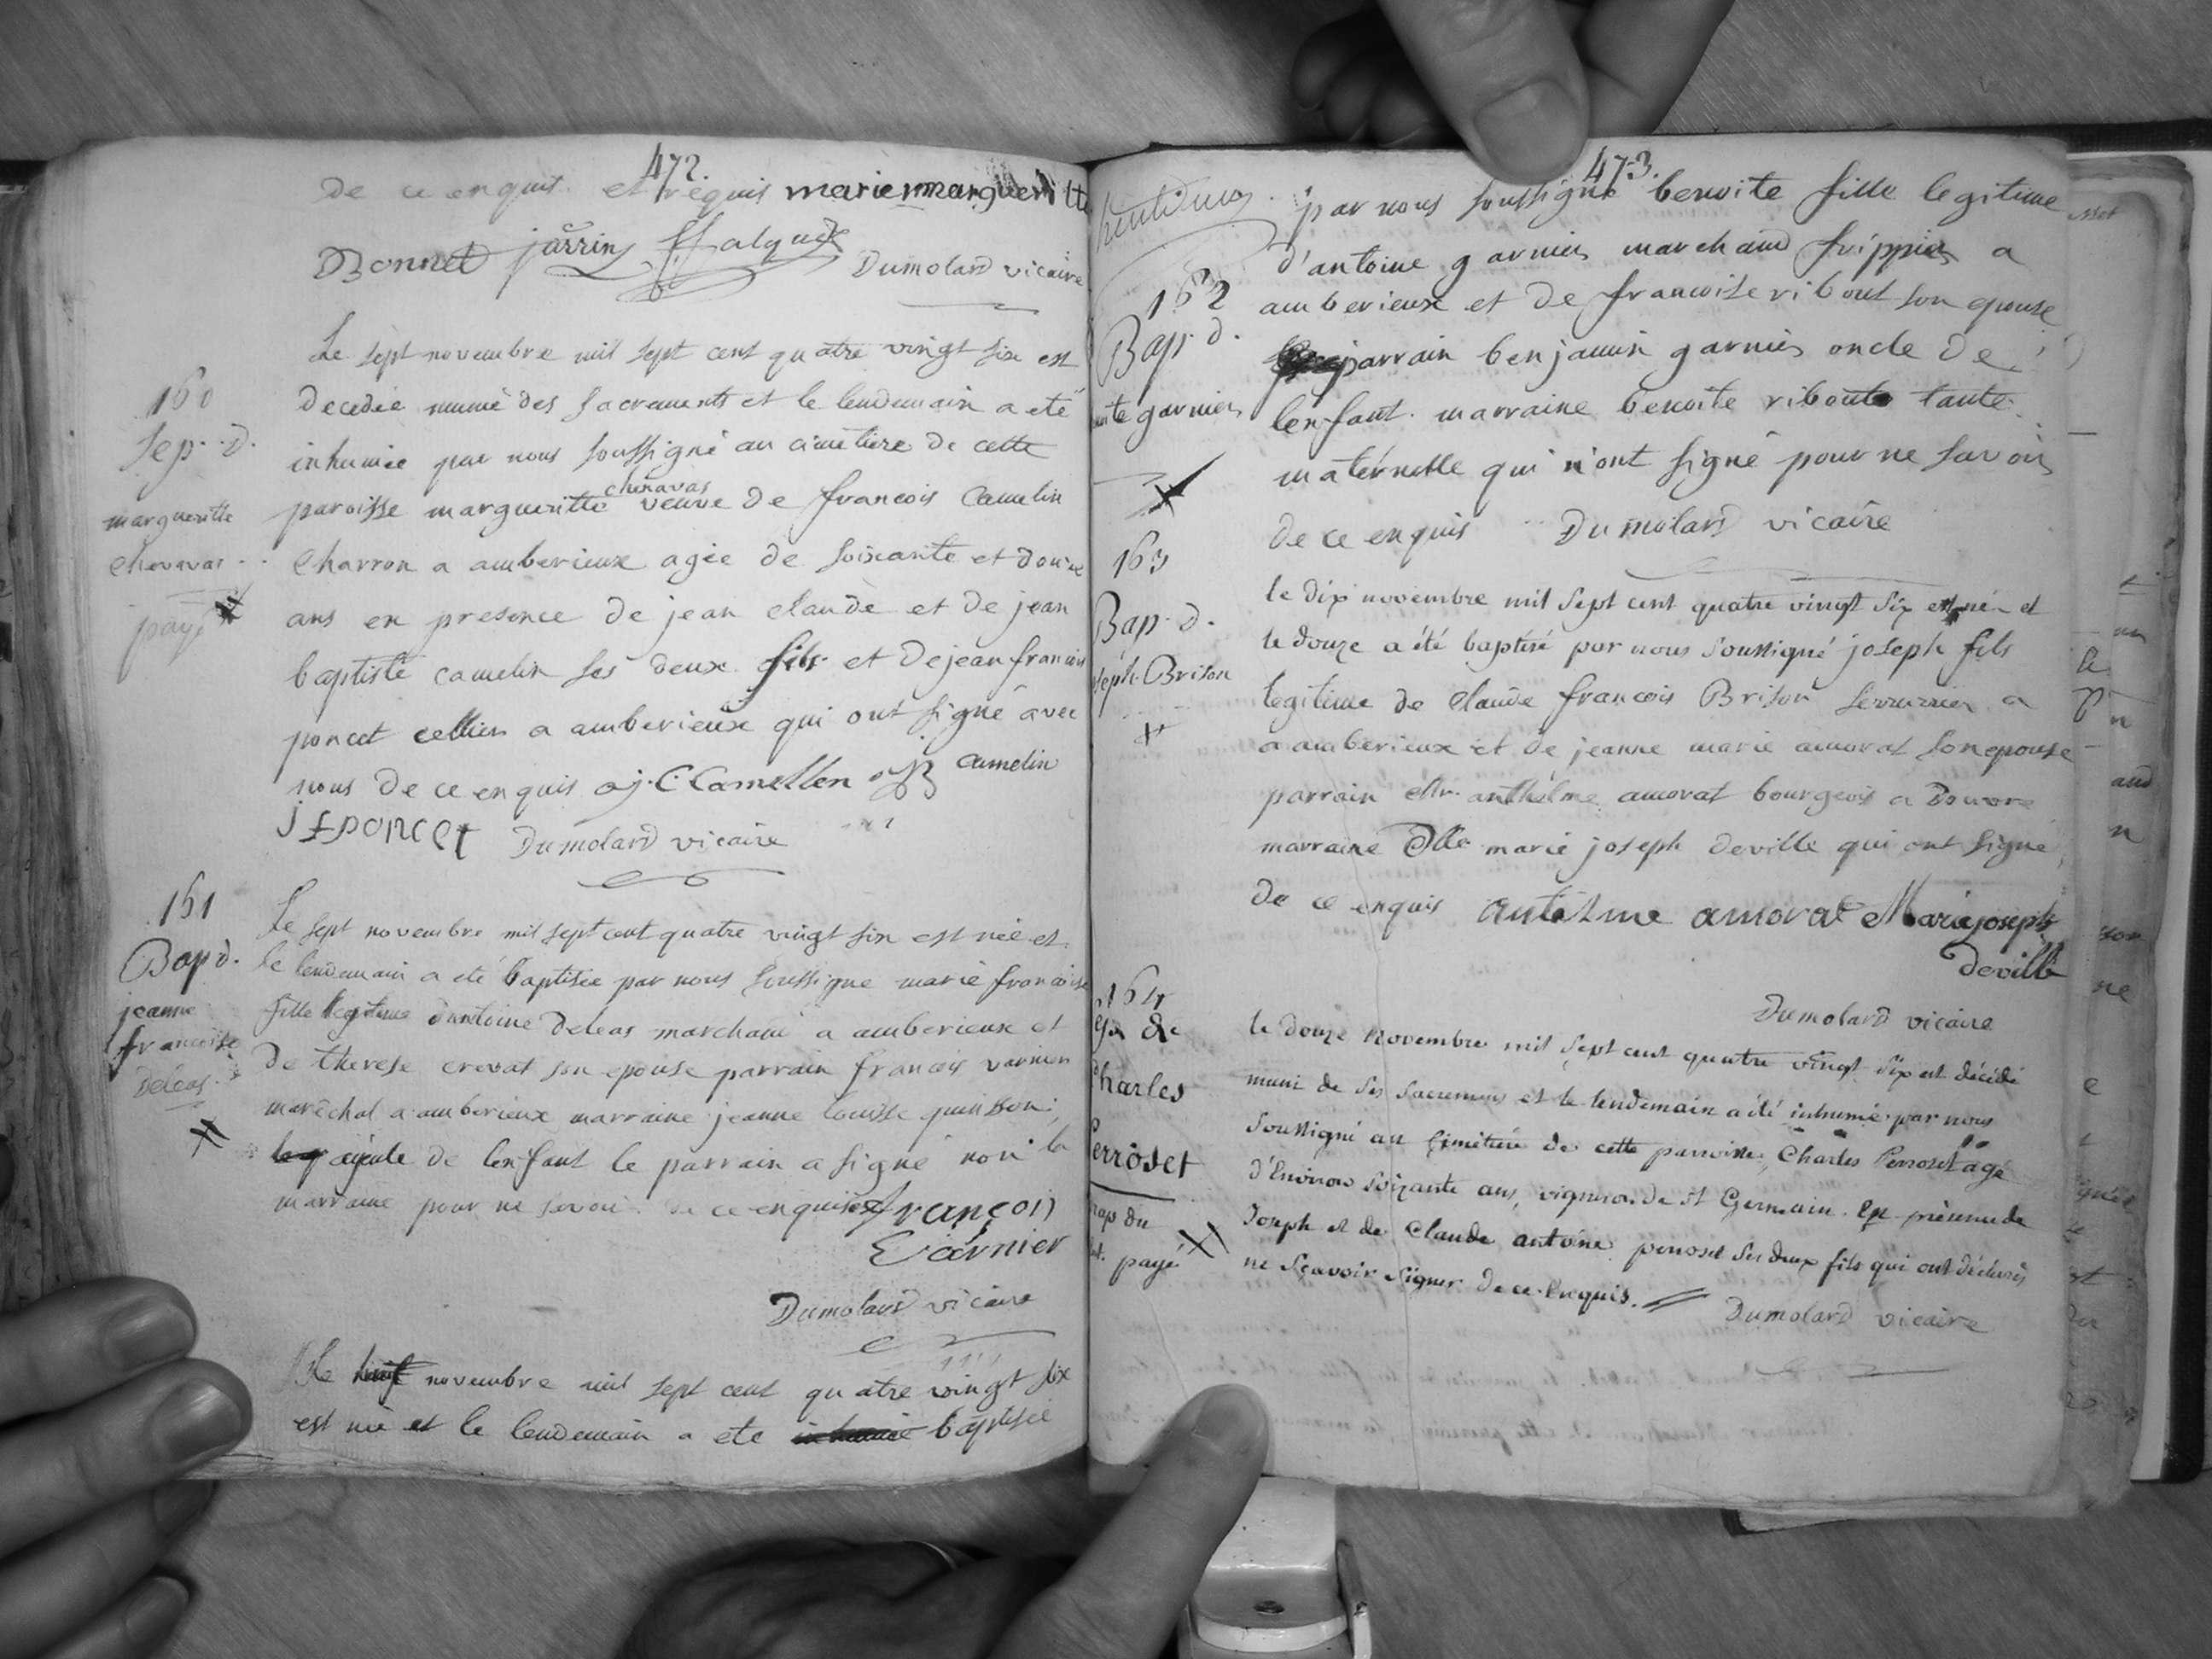 472.
de ce enquis et requis marie margueritte
Bonnet jarrin ffalquet Dumolard vicaire
160
Sep. d.
margueritte
chenavas
payé
Le sept novembre mil sept cent quatre vingt six est
decedée munie des sacrements et le lendemain a eté
inhumée par nous soussigné au cimetiere de cette
chenavas
paroisse margueritte veuve de francois Camelin
Charron a amberieux agée de soixante et douze
ans en presence de jean claude et de jean
baptiste camelin ses deux fils et de jean francois
poncet cellier a amberieux qui ont signé avec
nous de ce enquis j. C. Camellen JB camelin
J f poncet Dumolard vicaire
161
Bap d.
jeanne
francoise
Deleas
Le sept novembre mil sept cent quatre vingt six est née et
le lendemain a eté baptisée par nous soussigne marie francoise
fille legitime d'antoine Deleas marchand a amberieux et
de therese crevat son epouse parrain francois varnier
maréchal a amberieux marraine jeanne louisse quinson
ayeule de lenfant le parrain a signé non la
marraine pour ne savoir de ce enquise françois
Varnier
Dumolard vicaire
Le huit novembre mil sept cent quatre vingt six
est née et le lendemain a ete inhumée baptisée
473.
par nous soussigné benoite fille legitime
162
Bap. d.
garnier
d'antoine garnier marchand frippier a
amberieux et de francoise ribout son epouse
parrain benjamin garnier oncle de
lenfant. marraine benoite riboute tante
maternelle qui n'ont signé pour ne savoir
de ce enquis Dumolard vicaire
163
Bap. d.
seph Brison
le dix novembre mil sept cent quatre vingt six est né et
le douze a été baptisé par nous soussigné joseph fils
legitime de Claude francois Brison serrurier a
a amberieux et de jeanne marie amorat son epouse
parrain Mr. anthelme amorat bourgeois a Douvre
marraine Dlle marie joseph deville qui ont signé
de ce enquis antelme amorat Marie joseph
deville
Dumolard vicaire
164
de
Charles
Perroset
payé
le douze Novembre mil sept cent quatre vingt six est décédé
muni de ses sacremens et le lendemain a été inhumé par nous
soussigné au Cimetière de cette parroisse, Charles Perroset agé
d'Environ soixante ans, vigneron de st Germain. En présence de
Joseph et de Claude antoine perroset ses deux fils qui ont déclarés
ne sçavoir signer de ce Enquis. Dumolard vicaire